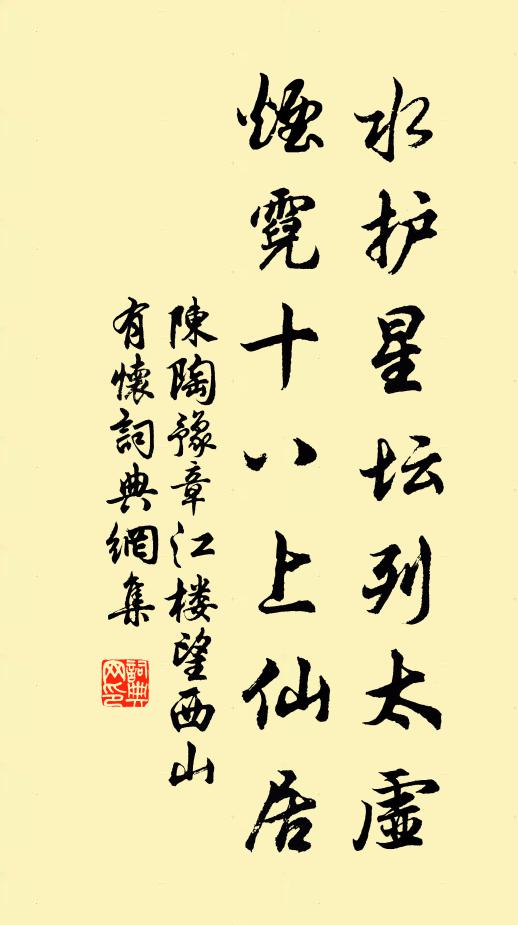 水护星坛列太虚
煙霓十八上仙居
陳陶豫章江楼望西山
有懷詞典網集
詞典網印